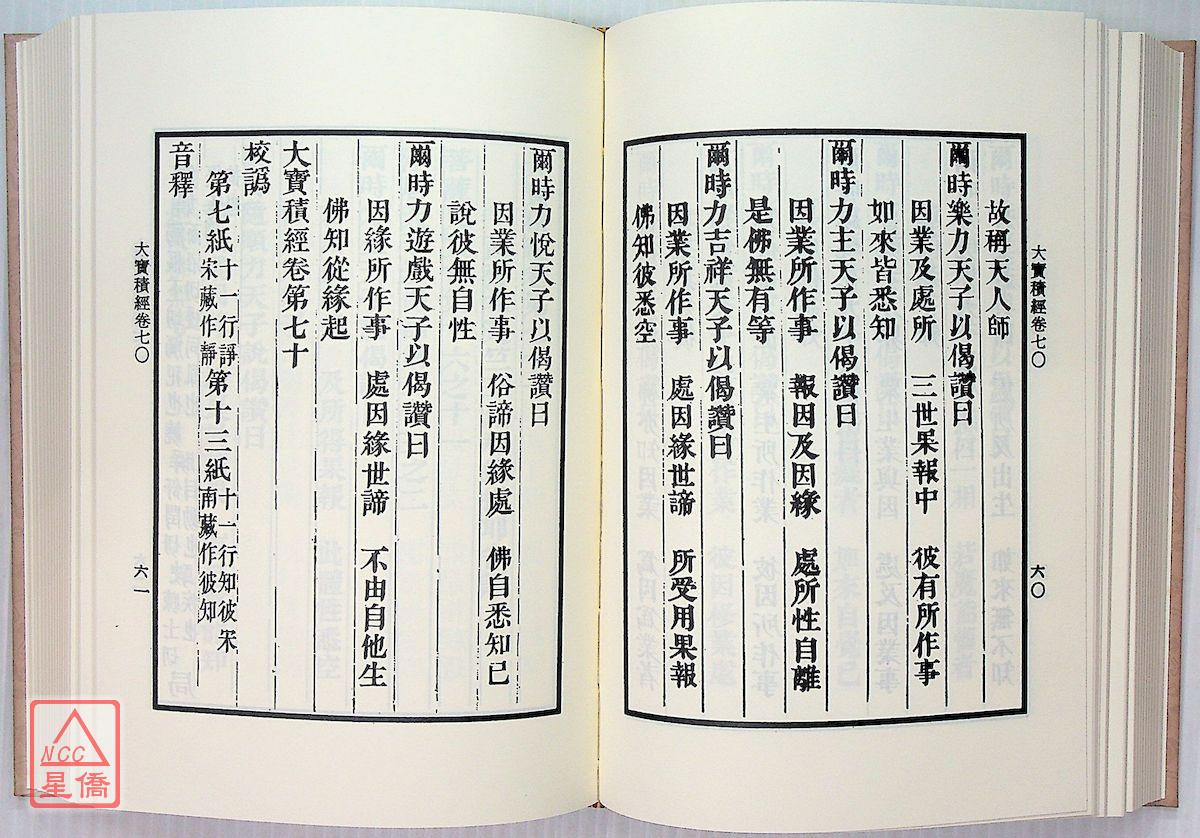 大寶積經卷七〇
六〇
故稱天人師
爾時樂力天子以偈讚曰
因業及處所　三世果報中　彼有所作事
如來皆悉知
爾時力主天子以偈讚曰
因業所作事　報因及因緣　處所性自離
是佛無有等
爾時力吉祥天子以偈讚曰
因業所作事　處因緣世諦　所受用果報
佛知彼悉空
爾時力悅天子以偈讚曰
因業所作事　俗諦因緣處　佛自悉知已
說彼無自性
爾時力遊戲天子以偈讚曰
因緣所作事　處因緣世諦　不由自他生
佛知從緣起
大寶積經卷第七十
校譌
第七紙十一行諍宋藏作靜第十三紙十一行知彼宋南藏作彼知
音釋
大寶積經卷七〇
六一
NCC
星僑